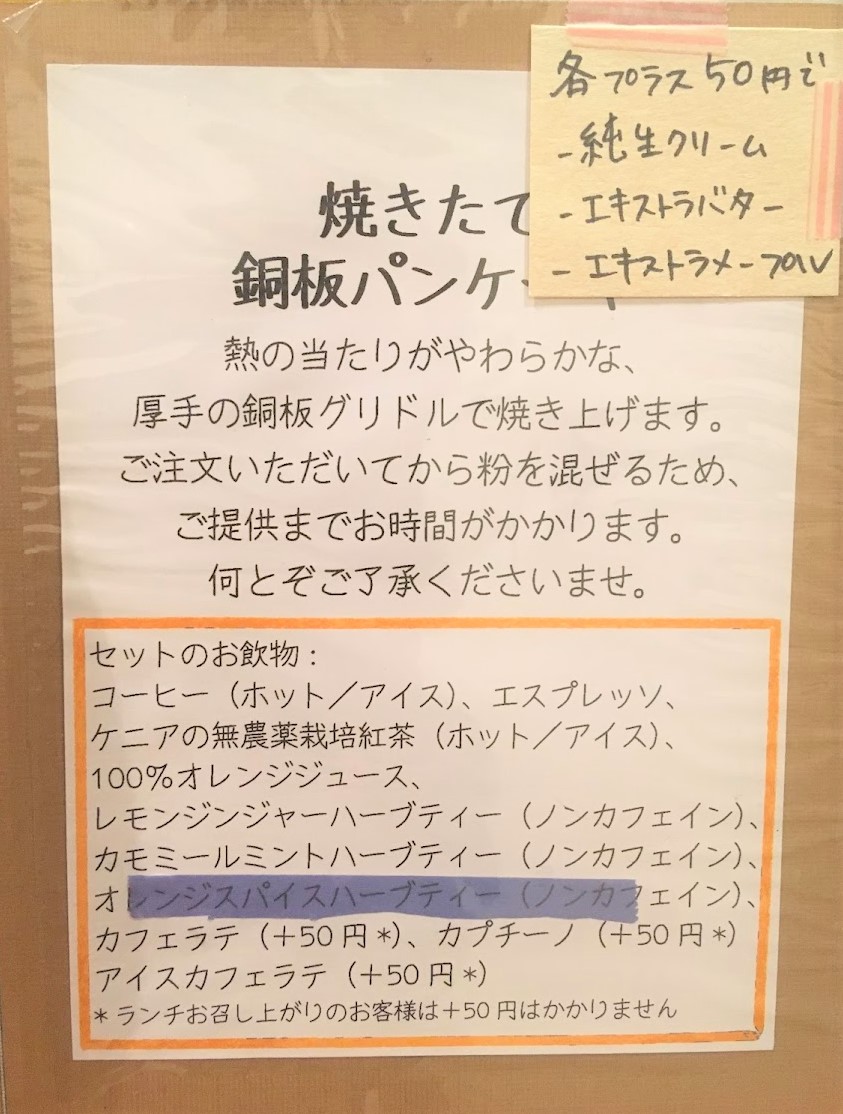 各プラス50円で
-純生クリーム
-エキストラバター
-エキストラメープル
焼きたて
銅板パンケ
熱の当たりがやわらかな、
厚手の銅板グリドルで焼き上げます。
ご注文いただいてから粉を混ぜるため、
ご提供までお時間がかかります。
何とぞご了承くださいませ。
セットのお飲物：
コーヒー（ホット／アイス）、エスプレッソ、
ケニアの無農薬栽培紅茶（ホット／アイス）、
100％オレンジジュース、
レモンジンジャーハーブティー（ノンカフェイン）、
カモミールミントハーブティー（ノンカフェイン）、
オレンジスパイスハーブティー（ノンカフェイン）、
カフェラテ（＋50円*）、カプチーノ（＋50円*）
アイスカフェラテ（＋50円*）
*ランチお召し上がりのお客様は＋50円はかかりません